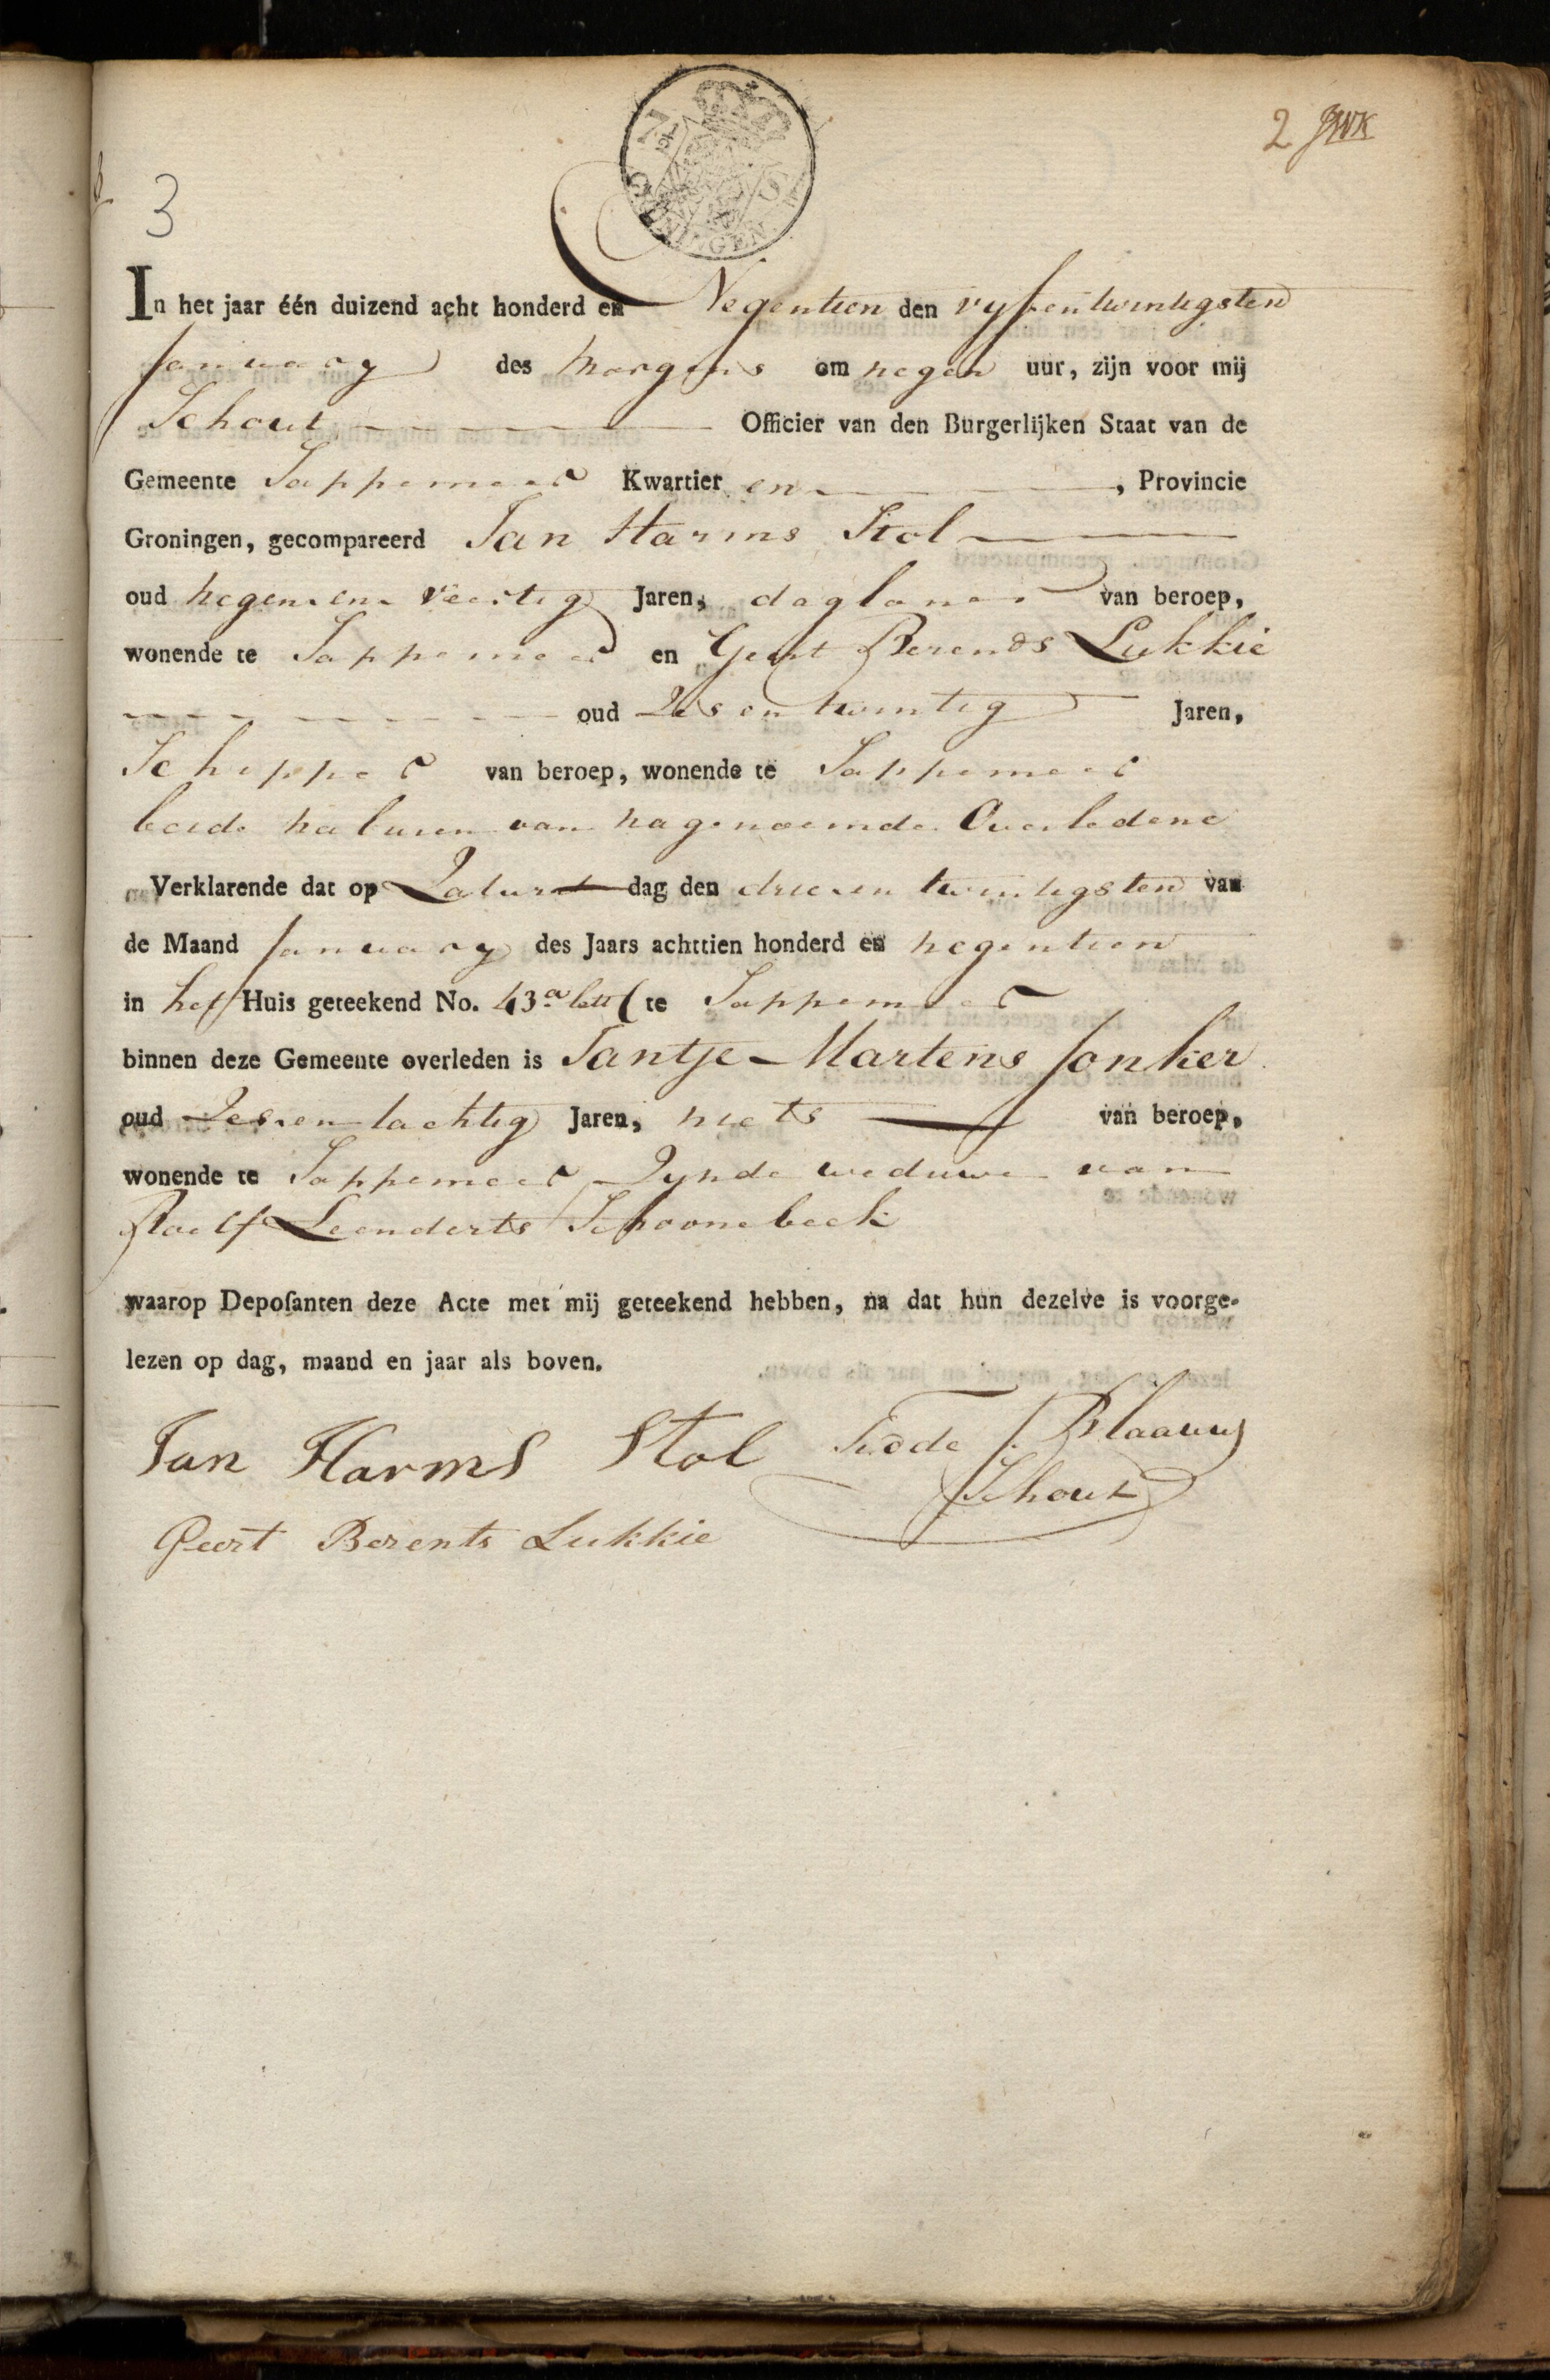 2 JWK
3
In het jaar één duizend acht honderd en Negentien den vyfentwintigsten
January des morgens om negen uur, zijn voor mij
Schout Officier van den Burgerlijken Staat van de
Gemeente Sappemeer Kwartier en , Provincie
Groningen, gecompareerd Jan Harms Stol
oud negen en veertig Jaren, dagloner van beroep,
wonende te Sappemeer en Geert Berends Lukkie
oud Zes en twintig Jaren,
Schipper van beroep, wonende te Sappemeer
beide naburen van nagenoemde Overledene
Verklarende dat op Zaturdag den drie en twintigsten van
de Maand January des Jaars achttien honderd en negentien
in het Huis geteekend No. 43 a lett te Sappemeer
binnen deze Gemeente overleden is Jantje Martens Jonker
oud Zes en tachtig Jaren, niets van beroep,
wonende te Sappemeer Zynde weduwe van
Roelf Leenderts Schoonebeek
waarop Deposanten deze Acte met mij geteekend hebben, na dat hun dezelve is voorge-
lezen op dag, maand en jaar als boven.
Jan Harms Stol
J. Blaauw
Schout
Geert Berents Lukkie